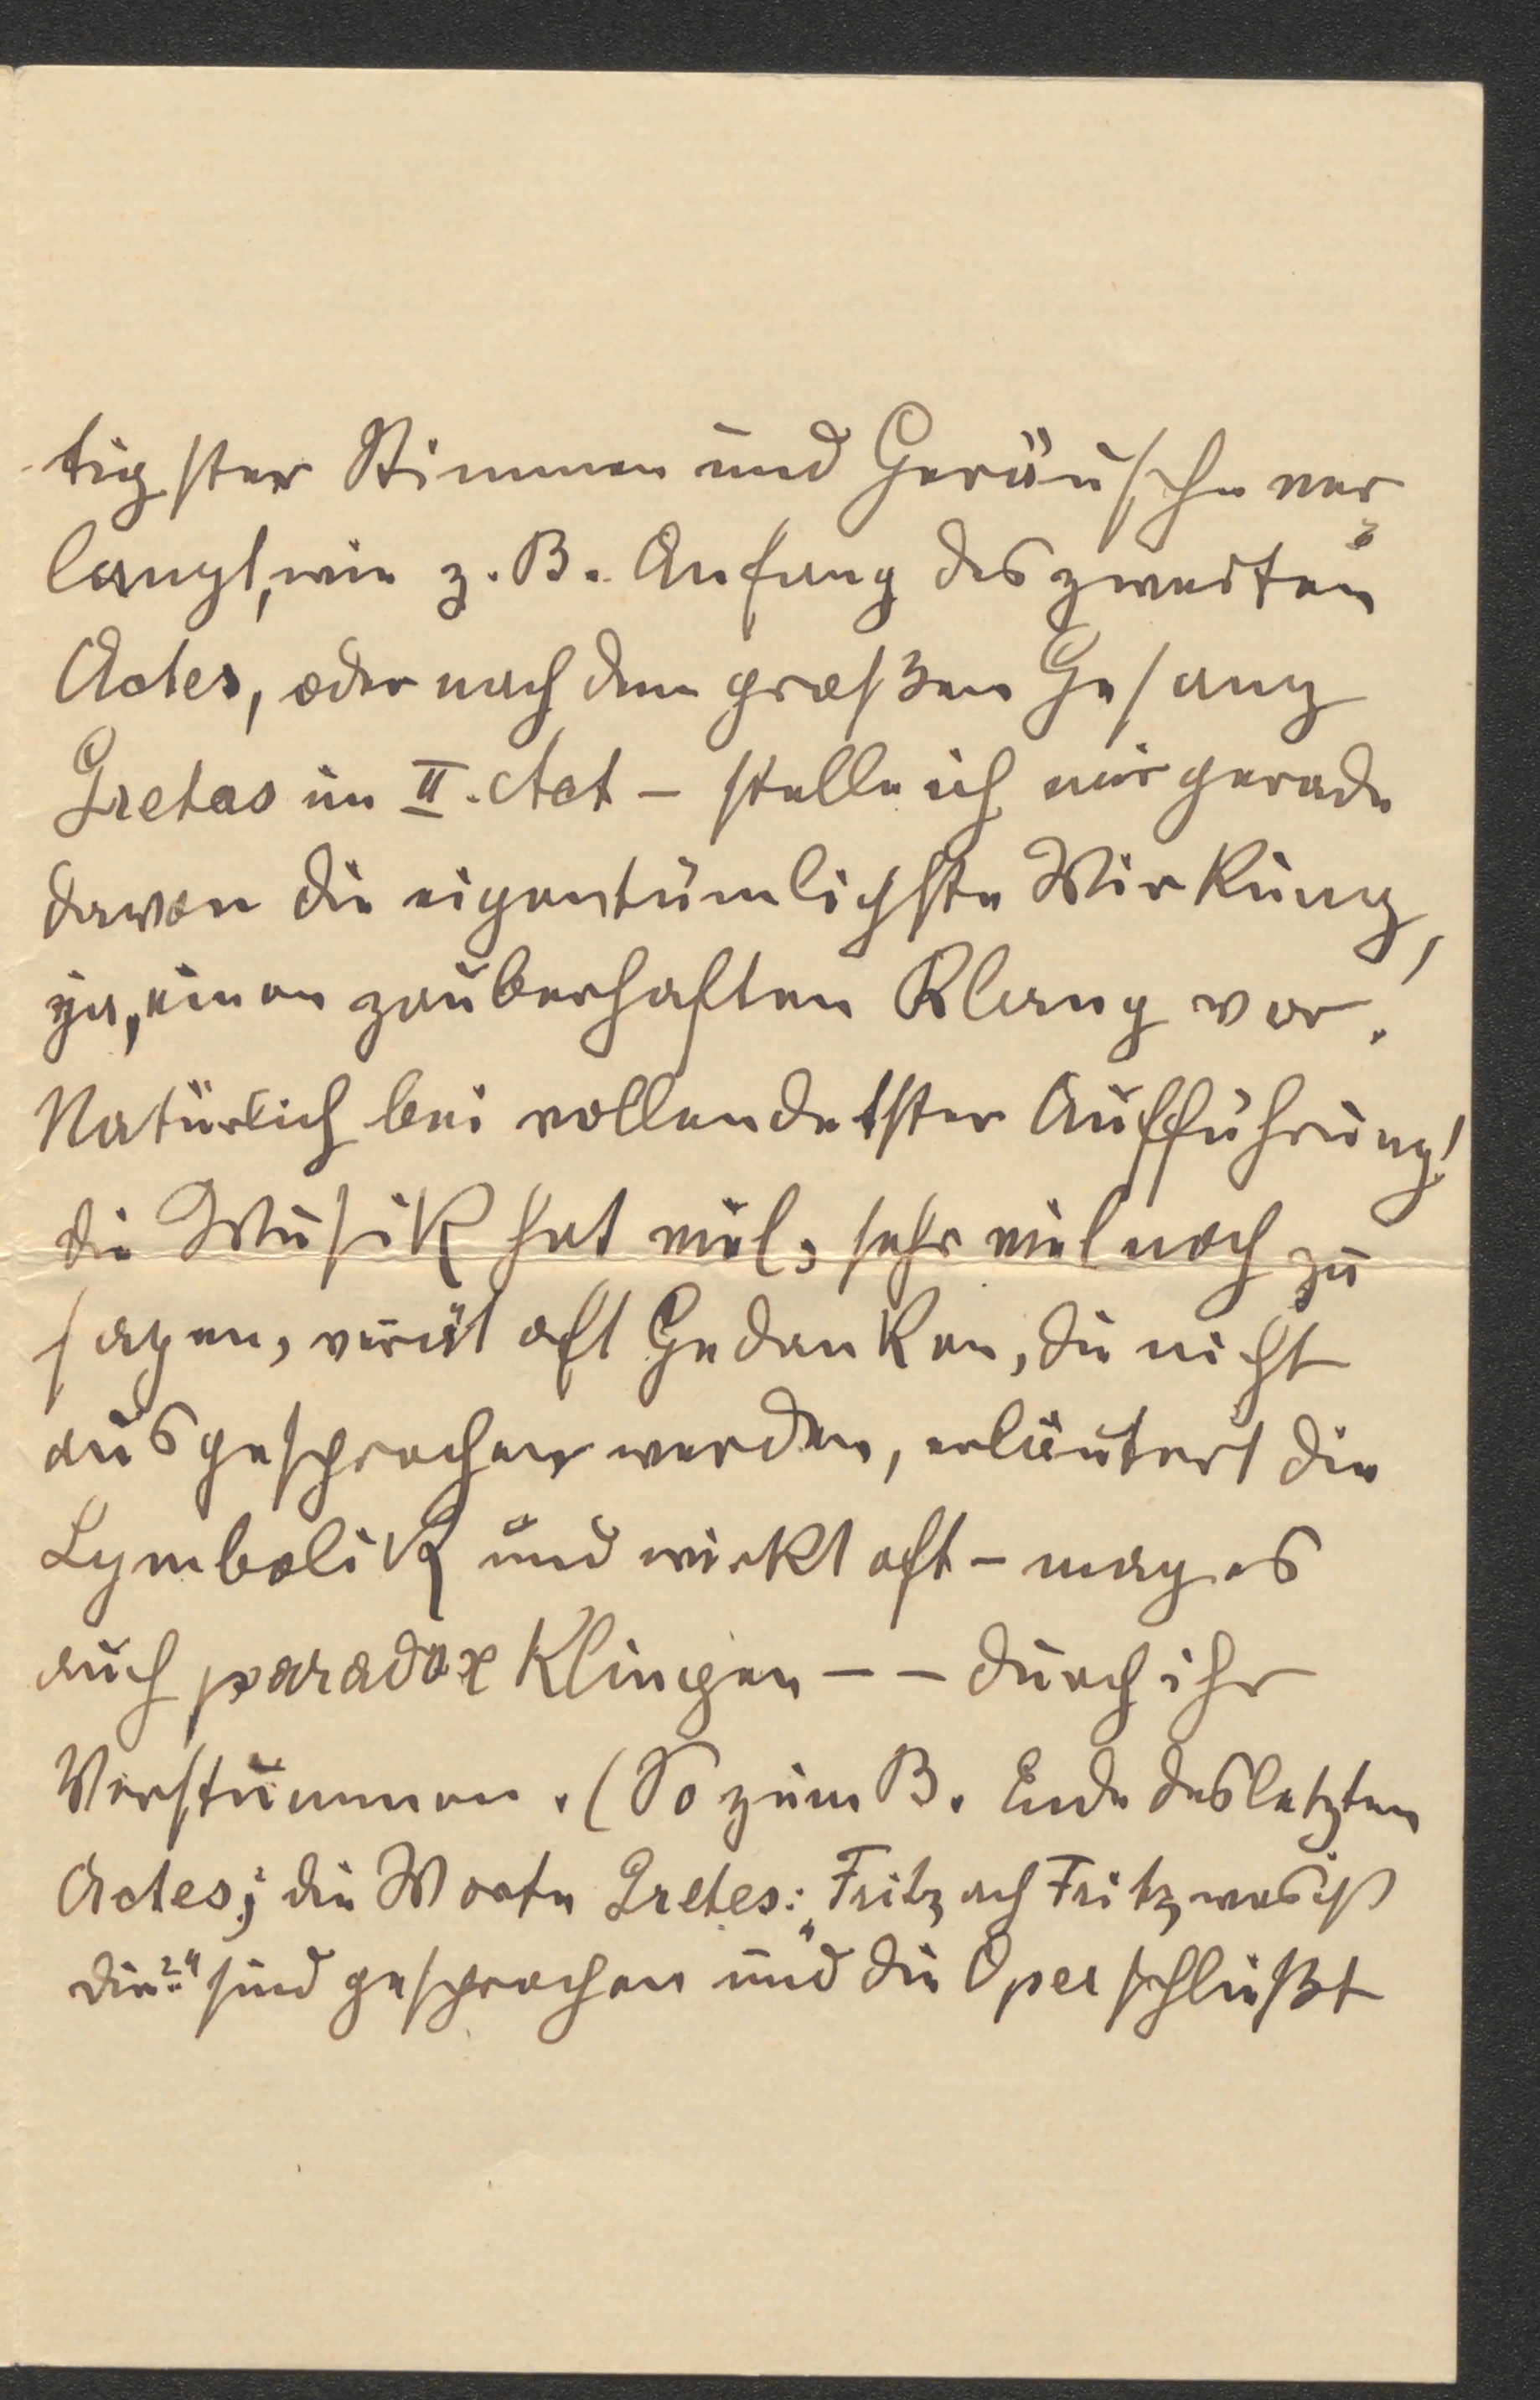 tigster Stimmen und Geräusche ver
langt, wie z. B. Anfang des zweiten
Actes, oder nach dem großen Gesang
Gretes im II. Act – stelle ich mir gerade
davon die eigentümlichste Wirkung,
ja, einen zauberhaften Klang vor!
Natürlich bei vollendetster Aufführung!
die Musik hat viel, sehr viel noch zu
sagen, verrät oft Gedanken, die nicht
ausgesprochen werden, erläutert die
Symbolik und wirkt oft – mag es
auch paradox klingen – – durch ihr
Verstummen. (So zum B. Ende des letzten
Actes; die Worte Gretes: „Fritz ach Fritz, was ist
dir?“ sind gesprochen und die Oper schließt